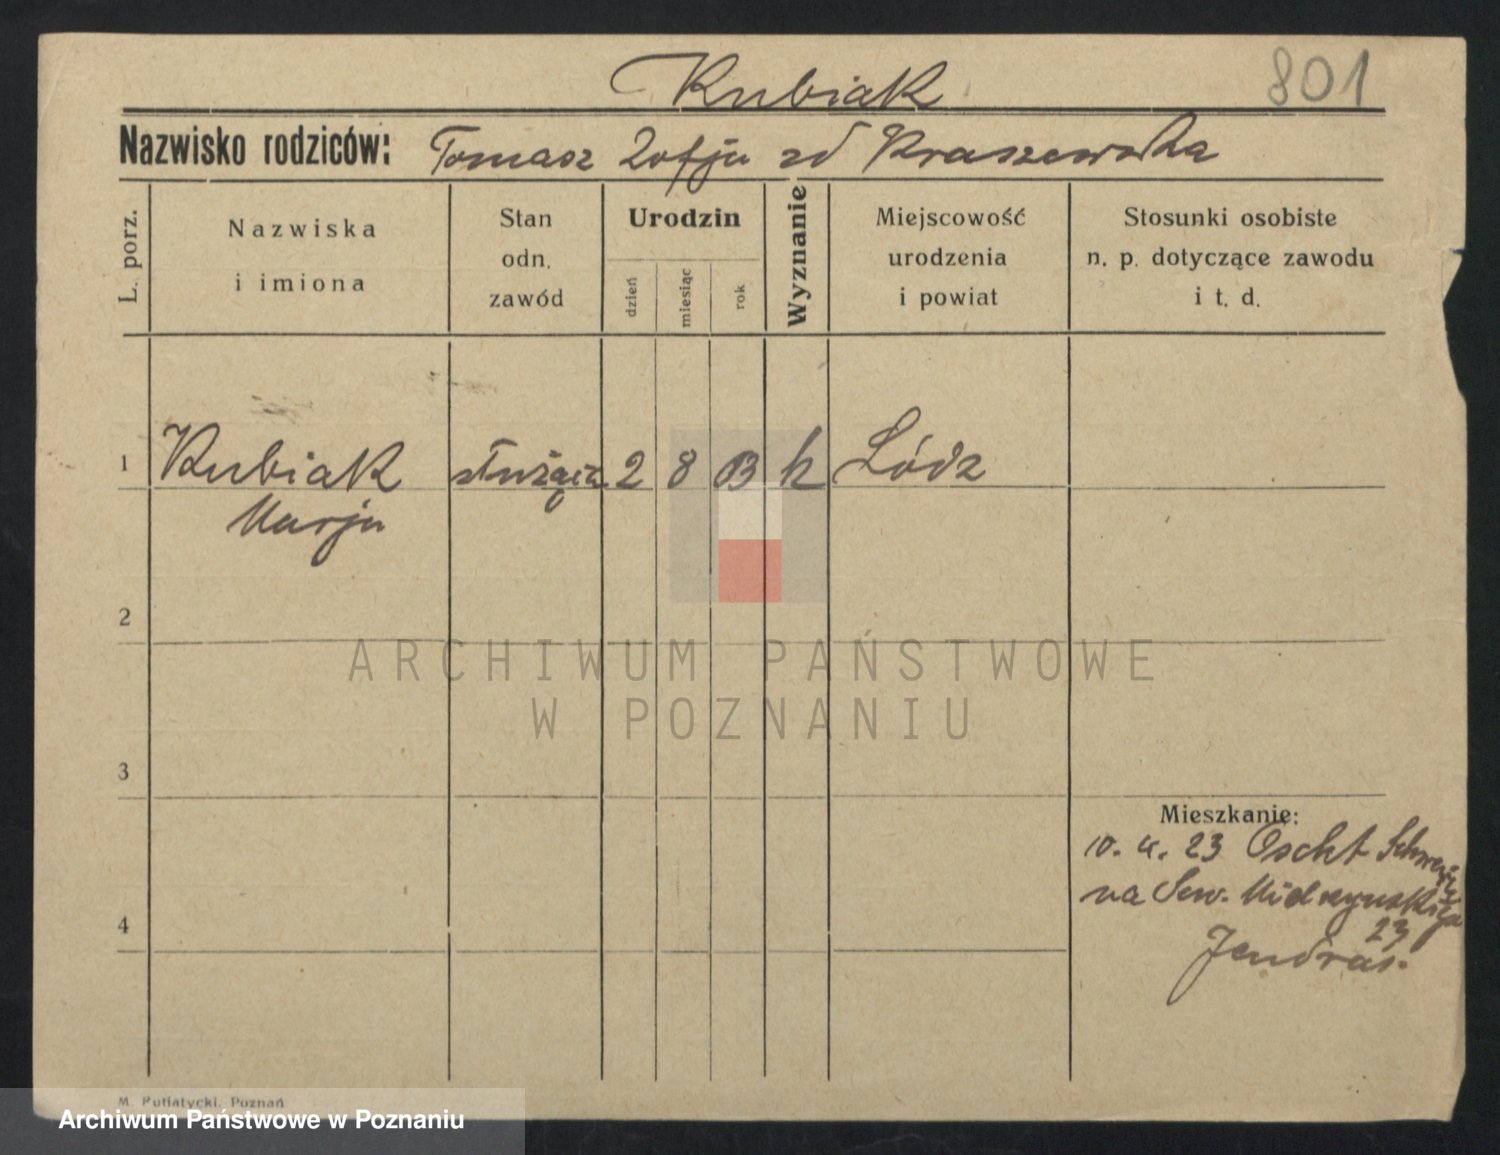 Kubiak 801
Nazwisko rodziców: Tomasz Zofja zd Kraszewska
L. porz.
Nazwiska
i imiona
Stan
odn.
zawód
Urodzin
dzień
miesiąc
rok
Wyznanie
Miejscowość
urodzenia
i powiat
Stosunki osobiste
n. p. dotyczące zawodu
i t. d.
1 Kubiak służąca 2 8 03 k Łódz
Marja
2
ARCHIWUM PAŃSTWOWE
W POZNANIU
3
Mieszkanie:
23
4
na Sew. Mielżyńskiego
23
M. Putiatycki, Poznań
Archiwum Państwowe w Poznaniu